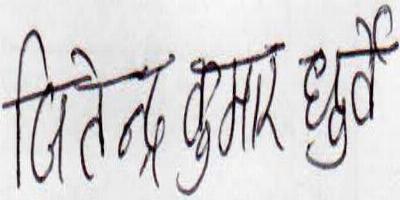 जितेन्द्र कुमार धुर्वे